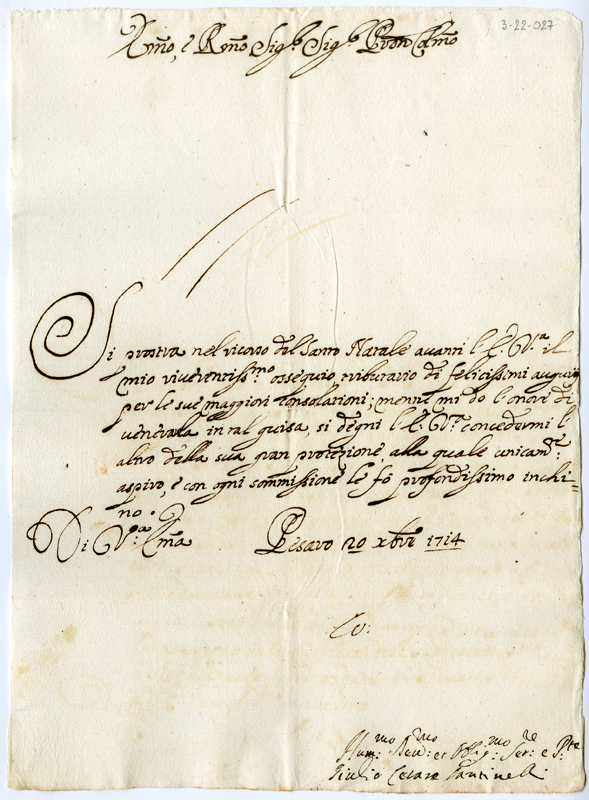 3-22-027
Emo, e Rmo Sig.e Sig.e Pron Colmo
Si prostra nel ricorso del Santo Natale avanti l'E. V.ra il
mio riverentiss.mo ossequio tributario di felicissimi augurij
per le sue maggiori consolationi; mentre mi do l'onore di
venerarla in tal guisa, si degni l'E. V.ra concedermi l'
altro della sua gran protezione, alla quale unicam.te
aspiro, e con ogni sommissione le fo profondissimo inchi=
no.
Di V.ra Em̃a Pesaro 20 xbre 1714
Co:
Hum:mo Dev:mo et Obblig:mo Ser:re e
Giulio Cesare